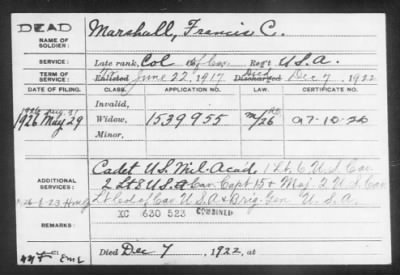 DEAD
NAME OF SOLDIER: Marshall, Francis C.
SERVICE: Late rank, Col of Cav. Reg't U.S.A.
TERM OF SERVICE: Enlisted June 22, 1917 Discharged Died Dec 7, 1922
DATE OF FILING. CLASS. APPLICATION NO. LAW. CERTIFICATE NO.
Invalid,
1926 May 29 Widow, 1539955 26 A 7-10-26
Minor,
ADDITIONAL SERVICES: Cadet U.S. Mil. Acad. 1 Lt 6 U.S. Cav
2 Lt 8 U.S. Cav. Capt 15 & Maj. 2 U.S. Cav
Lt Col of Cav U.S.A & Brig. Gen U.S.A.
XC 630 523 COMBINED
REMARKS:
Died Dec 7, 1922, at